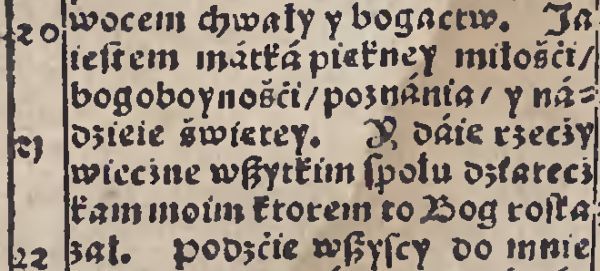 20 wocem chwały y bogactw. Ja
iestem mátká piękney miłośći/
bogoboynośći/ poznánia/ y ná-
21 dzieie świętey. Y dáie rzeczy
wieczne wszytkim społu dziateċz
kam moim ktorem to Bog roska-
22 zał. Podzćie wszyscy do mnie